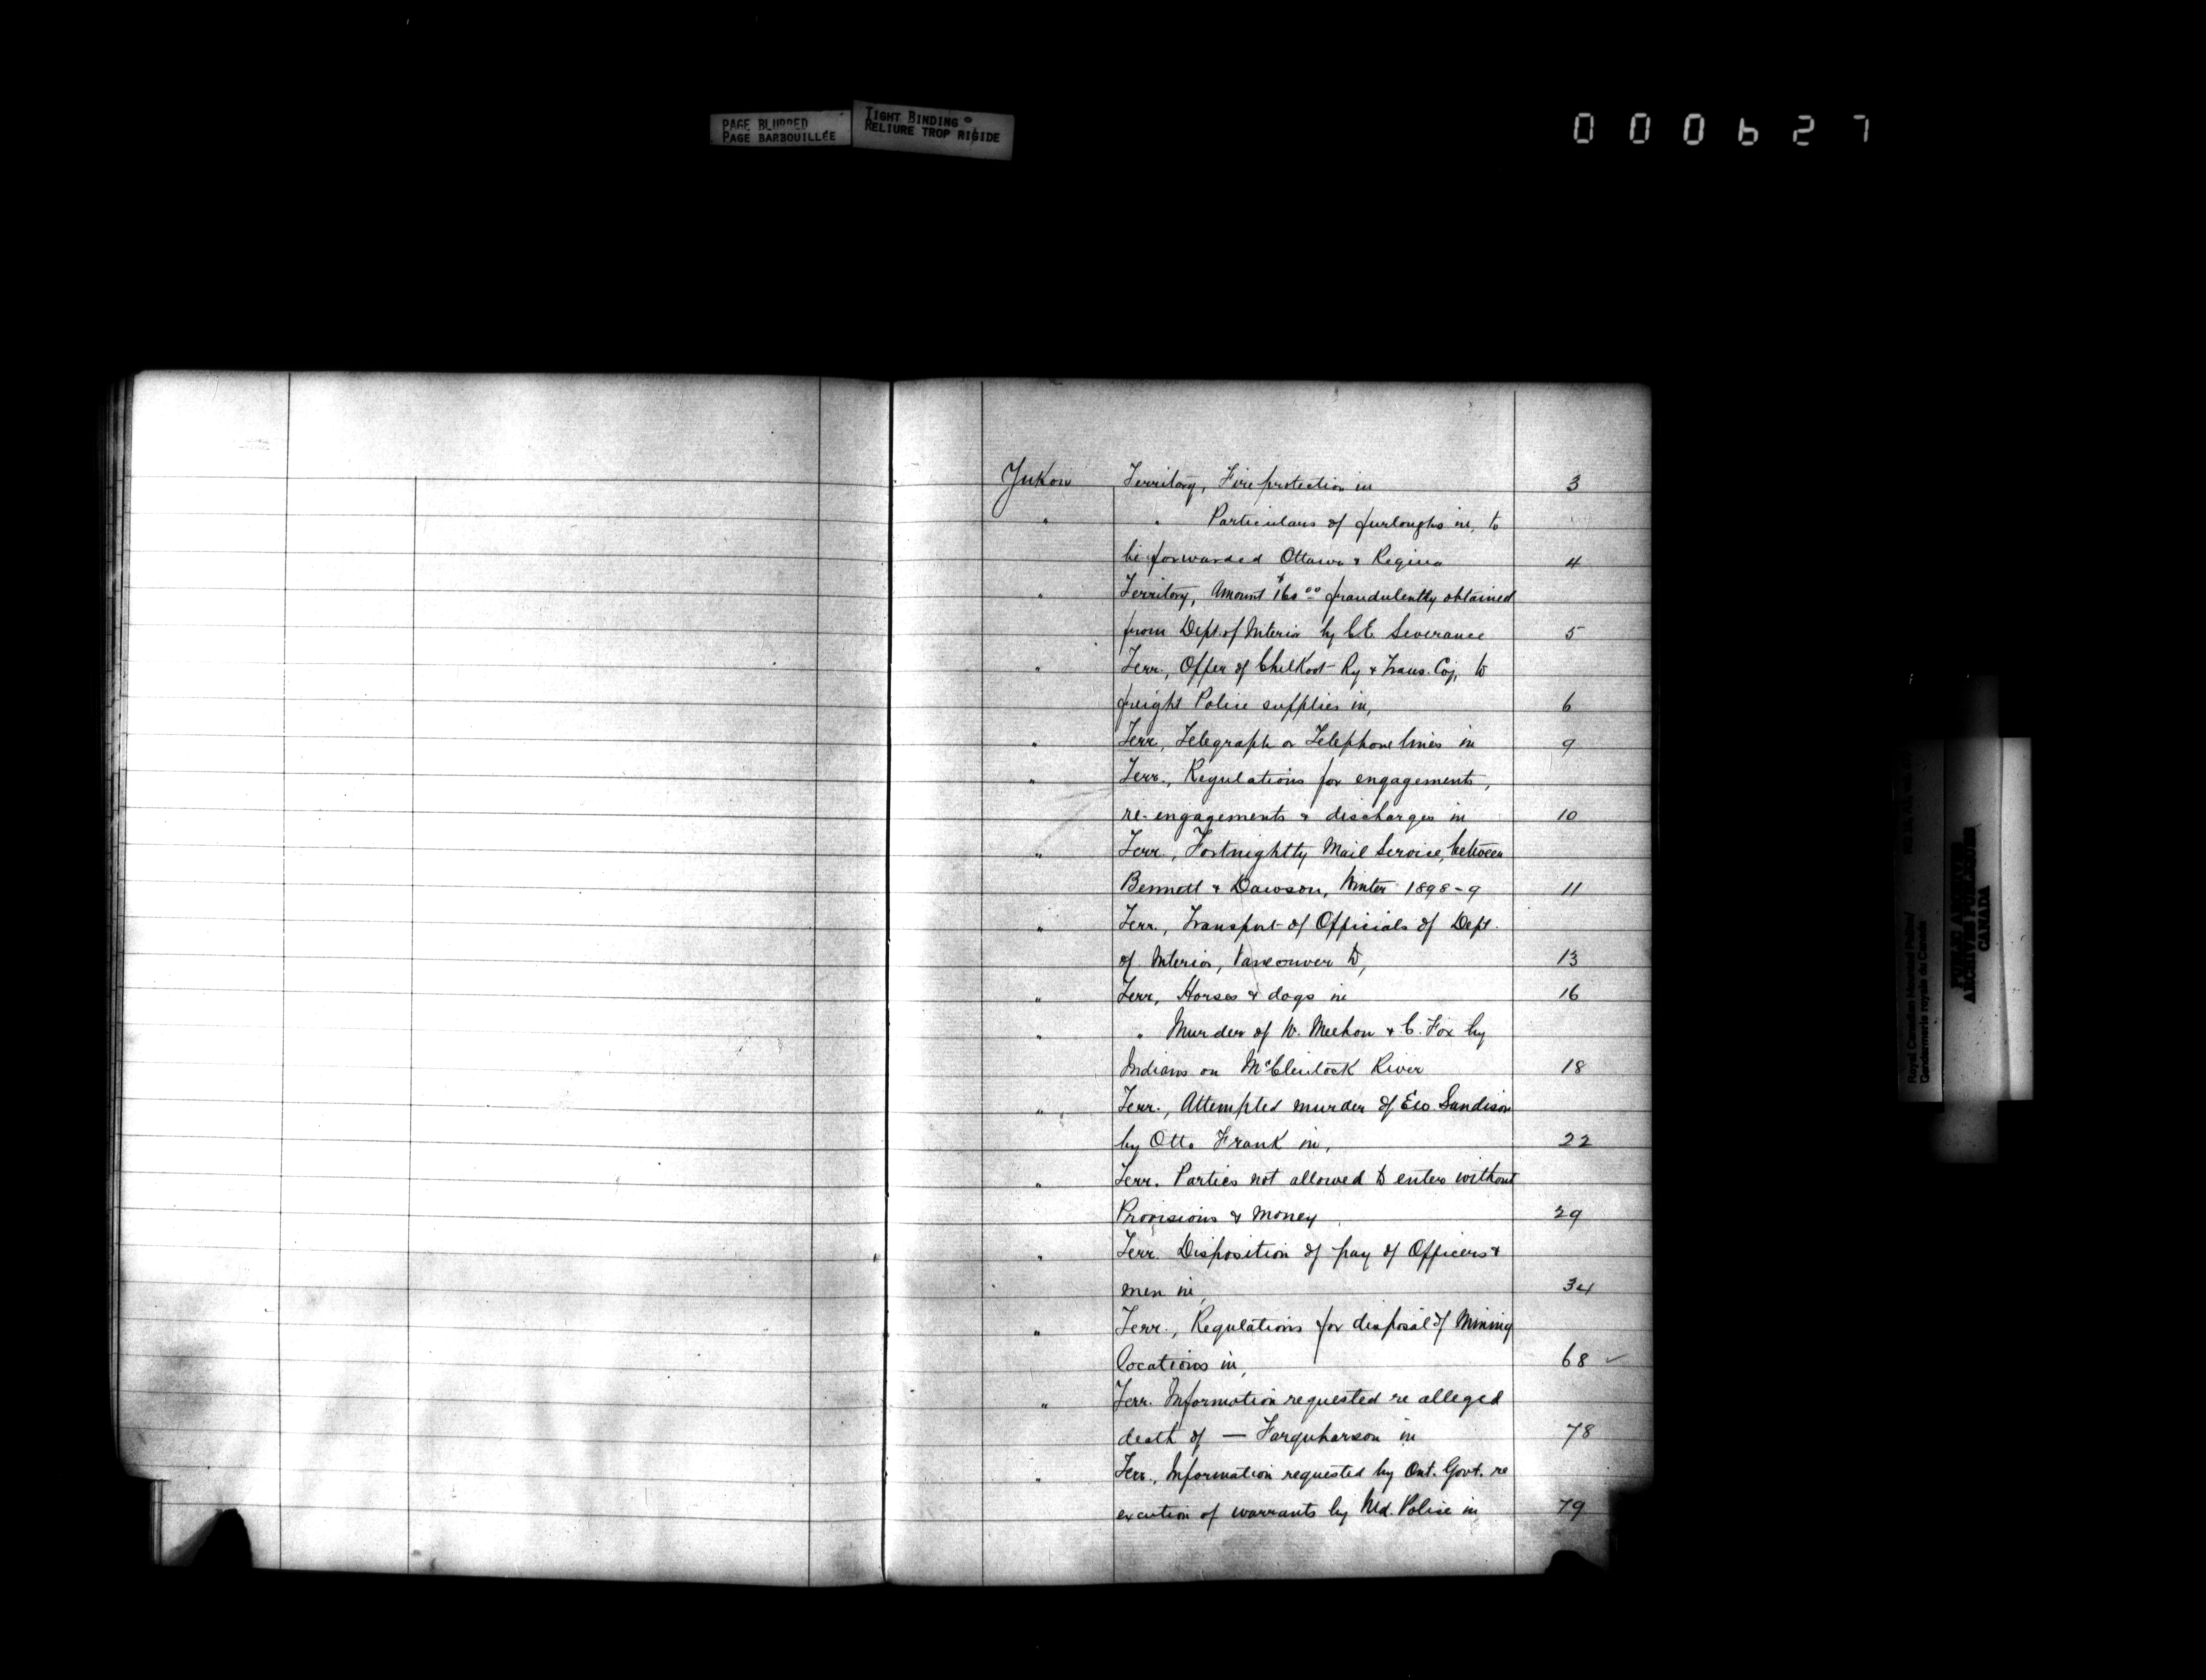 PAGE BLURRED
PAGE BARBOUILLÉE
TIGHT BINDING
RELIURE TROP RIGIDE
000627
Yukon Territory, Fire protection in 3
" " Particulars of furloughs in, to
be forwarded Ottawa & Regina 4
" Territory, Amount $160.00 fraudulently obtained
from Dept. of Interior by C.E. Severance 5
" Terr., Offer of Chilkoot Ry & Trans. Coy, to
freight Police supplies in, 6
" Terr, Telegraph or Telephone lines in 9
" Terr., Regulations for engagements,
re-engagements & discharges in 10
" Terr., Fortnightly Mail Service, between
Bennett & Dawson, Winter 1898-9 11
" Terr., Transport of Officials of Dept.
of Interior, Vancouver to, 13
" Terr, Horses & dogs in 16
" " Murder of W. Meehan & C. Fox by
Indians on McClintock River 18
" Terr., Attempted murder of Sandison
by Otto Frank in, 22
" Terr. Parties not allowed to enter without
Provisions & Money 29
" Terr. Disposition of pay of Officers &
men in, 34
" Terr., Regulations for disposal of Mining
locations in, 68 ✓
" Terr. Information requested re alleged
death of — Farquharson in 78
" Terr., Information requested by Ont. Govt. re
excution of warrants by Md. Police in 79
Royal Canadian Mounted Police/
Gendarmerie royale du Canada
PUBLIC ARCHIVES
ARCHIVES PUBLIQUES
CANADA